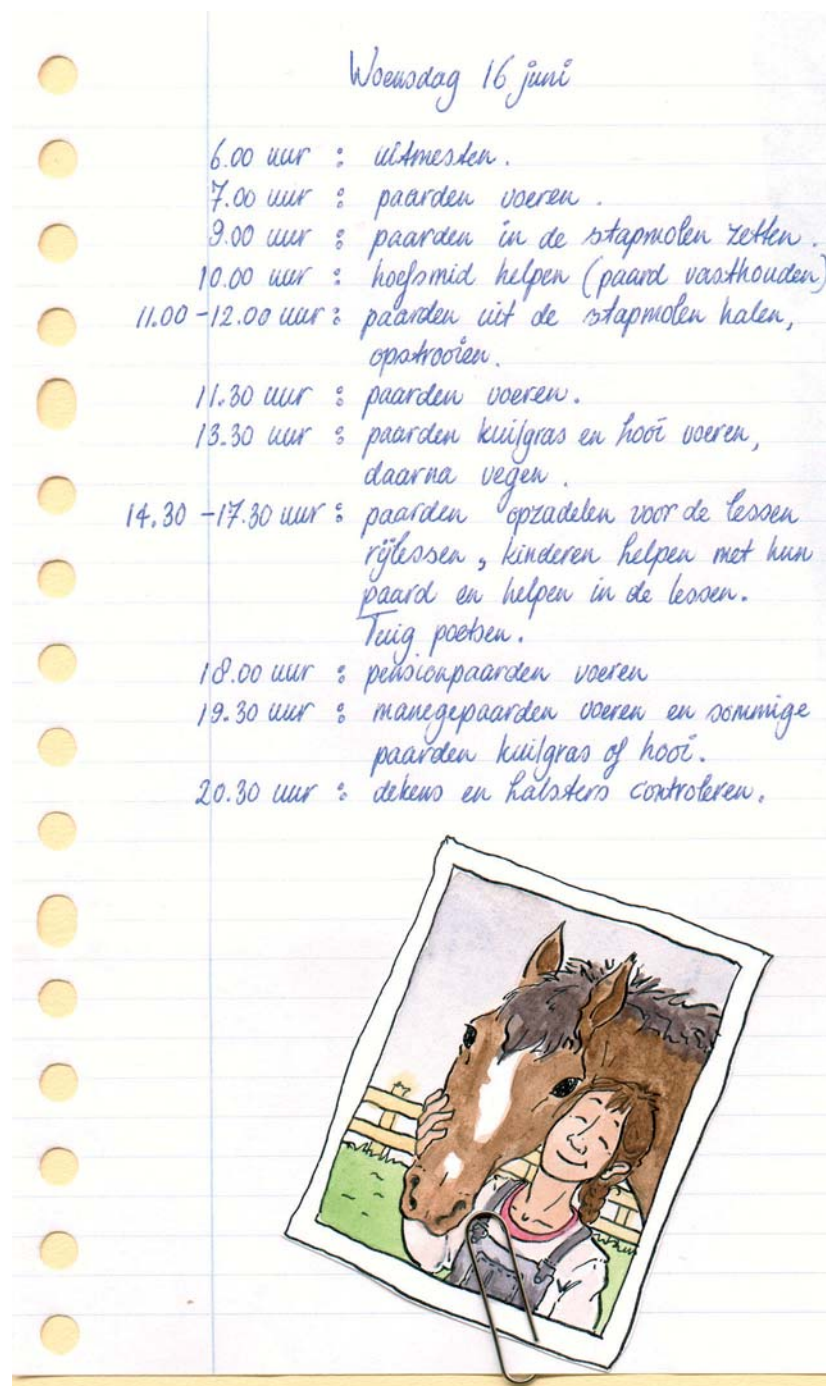 Woensdag 16 juni
6.00 uur : uitmesten.
7.00 uur : paarden voeren.
9.00 uur : paarden in de stapmolen zetten.
10.00 uur : hoefsmid helpen (paard vasthouden)
11.00-12.00 uur : paarden uit de stapmolen halen,
opstrooien.
11.30 uur : paarden voeren.
13.30 uur : paarden kuilgras en hooi voeren,
daarna vegen.
14.30-17.30 uur : paarden opzadelen voor de lessen
rijlessen, kinderen helpen met hun
paard en helpen in de lessen.
Tuig poetsen.
18.00 uur : pensionpaarden voeren
19.30 uur : manegepaarden voeren en sommige
paarden kuilgras of hooi.
20.30 uur : dekens en halsters controleren.